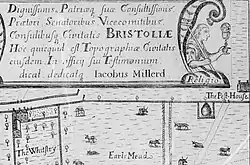 Dignissimis, Patriæq suæ Consultissimis
Prætori Senatoribus Vicecomitibus
Consulibusq Civitatis BRISTOLIÆ
Hoc quicquid est Topographiæ Civitatis
eiusdem In officij sui Testimonium
dicat dedicatq Iacobus Millerd
Religio
The Pest-House
The Whitstry
Earles Mead